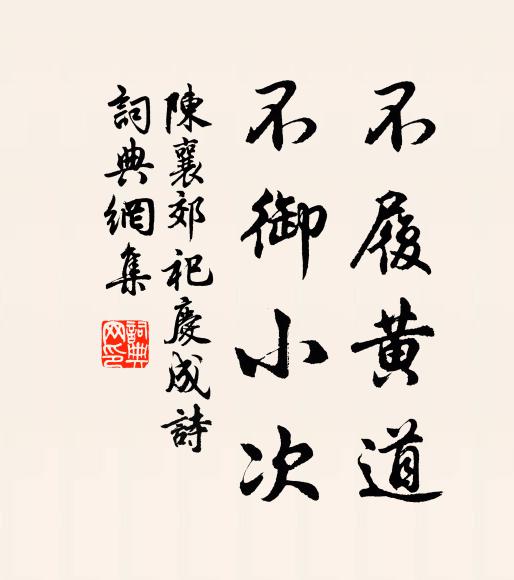 不履黄道
不御小次
陳襄郊祀慶成詩
詞典網集
詞典网印